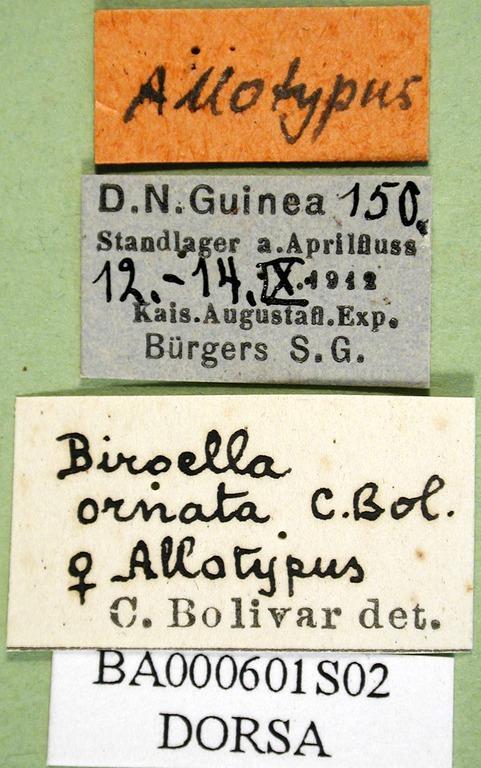 Allotypus
D.N.Guinea 150.
Standlager a.Aprilfluss
12.-14.IX.1912
Kais.Augustafl.Exp.
Bürgers S.G.
Biroella
ornata C.Bol.
♀ Allotypus
C. Bolivar det.
BA000601S02
DORSA